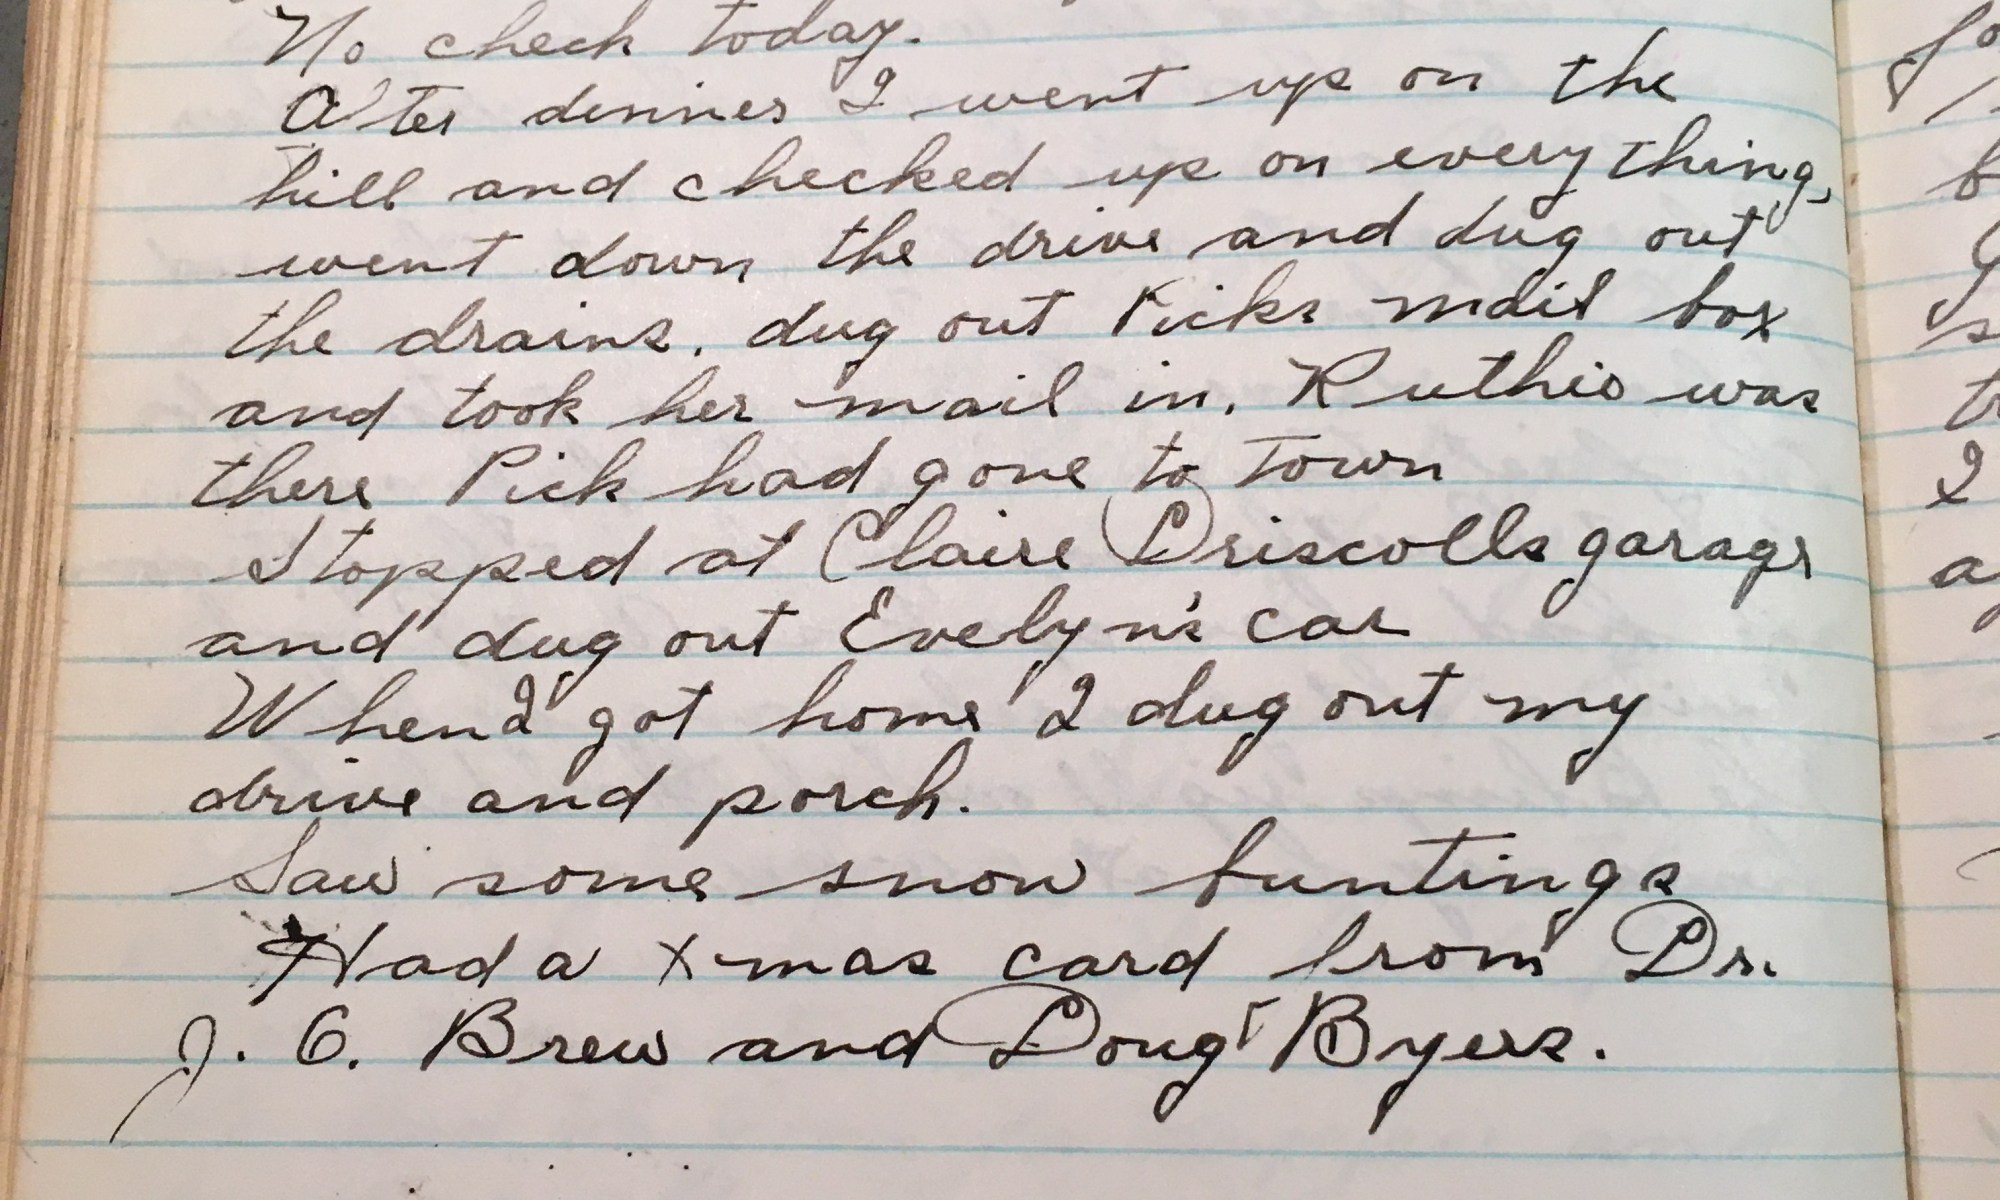 No check today.
After dinner I went up on the
hill and checked up on every thing,
went down the drive and dug out
the drains. dug out Picks mail box
and took her mail in. Ruthie was
there Pick had gone to town
Stopped at Claire Driscolls garage
and dug out Evelyn's car
When I got home I dug out my
drive and porch.
Saw some snow buntings
Had a X-mas card from Dr.
J. O. Brew and Doug Byers.